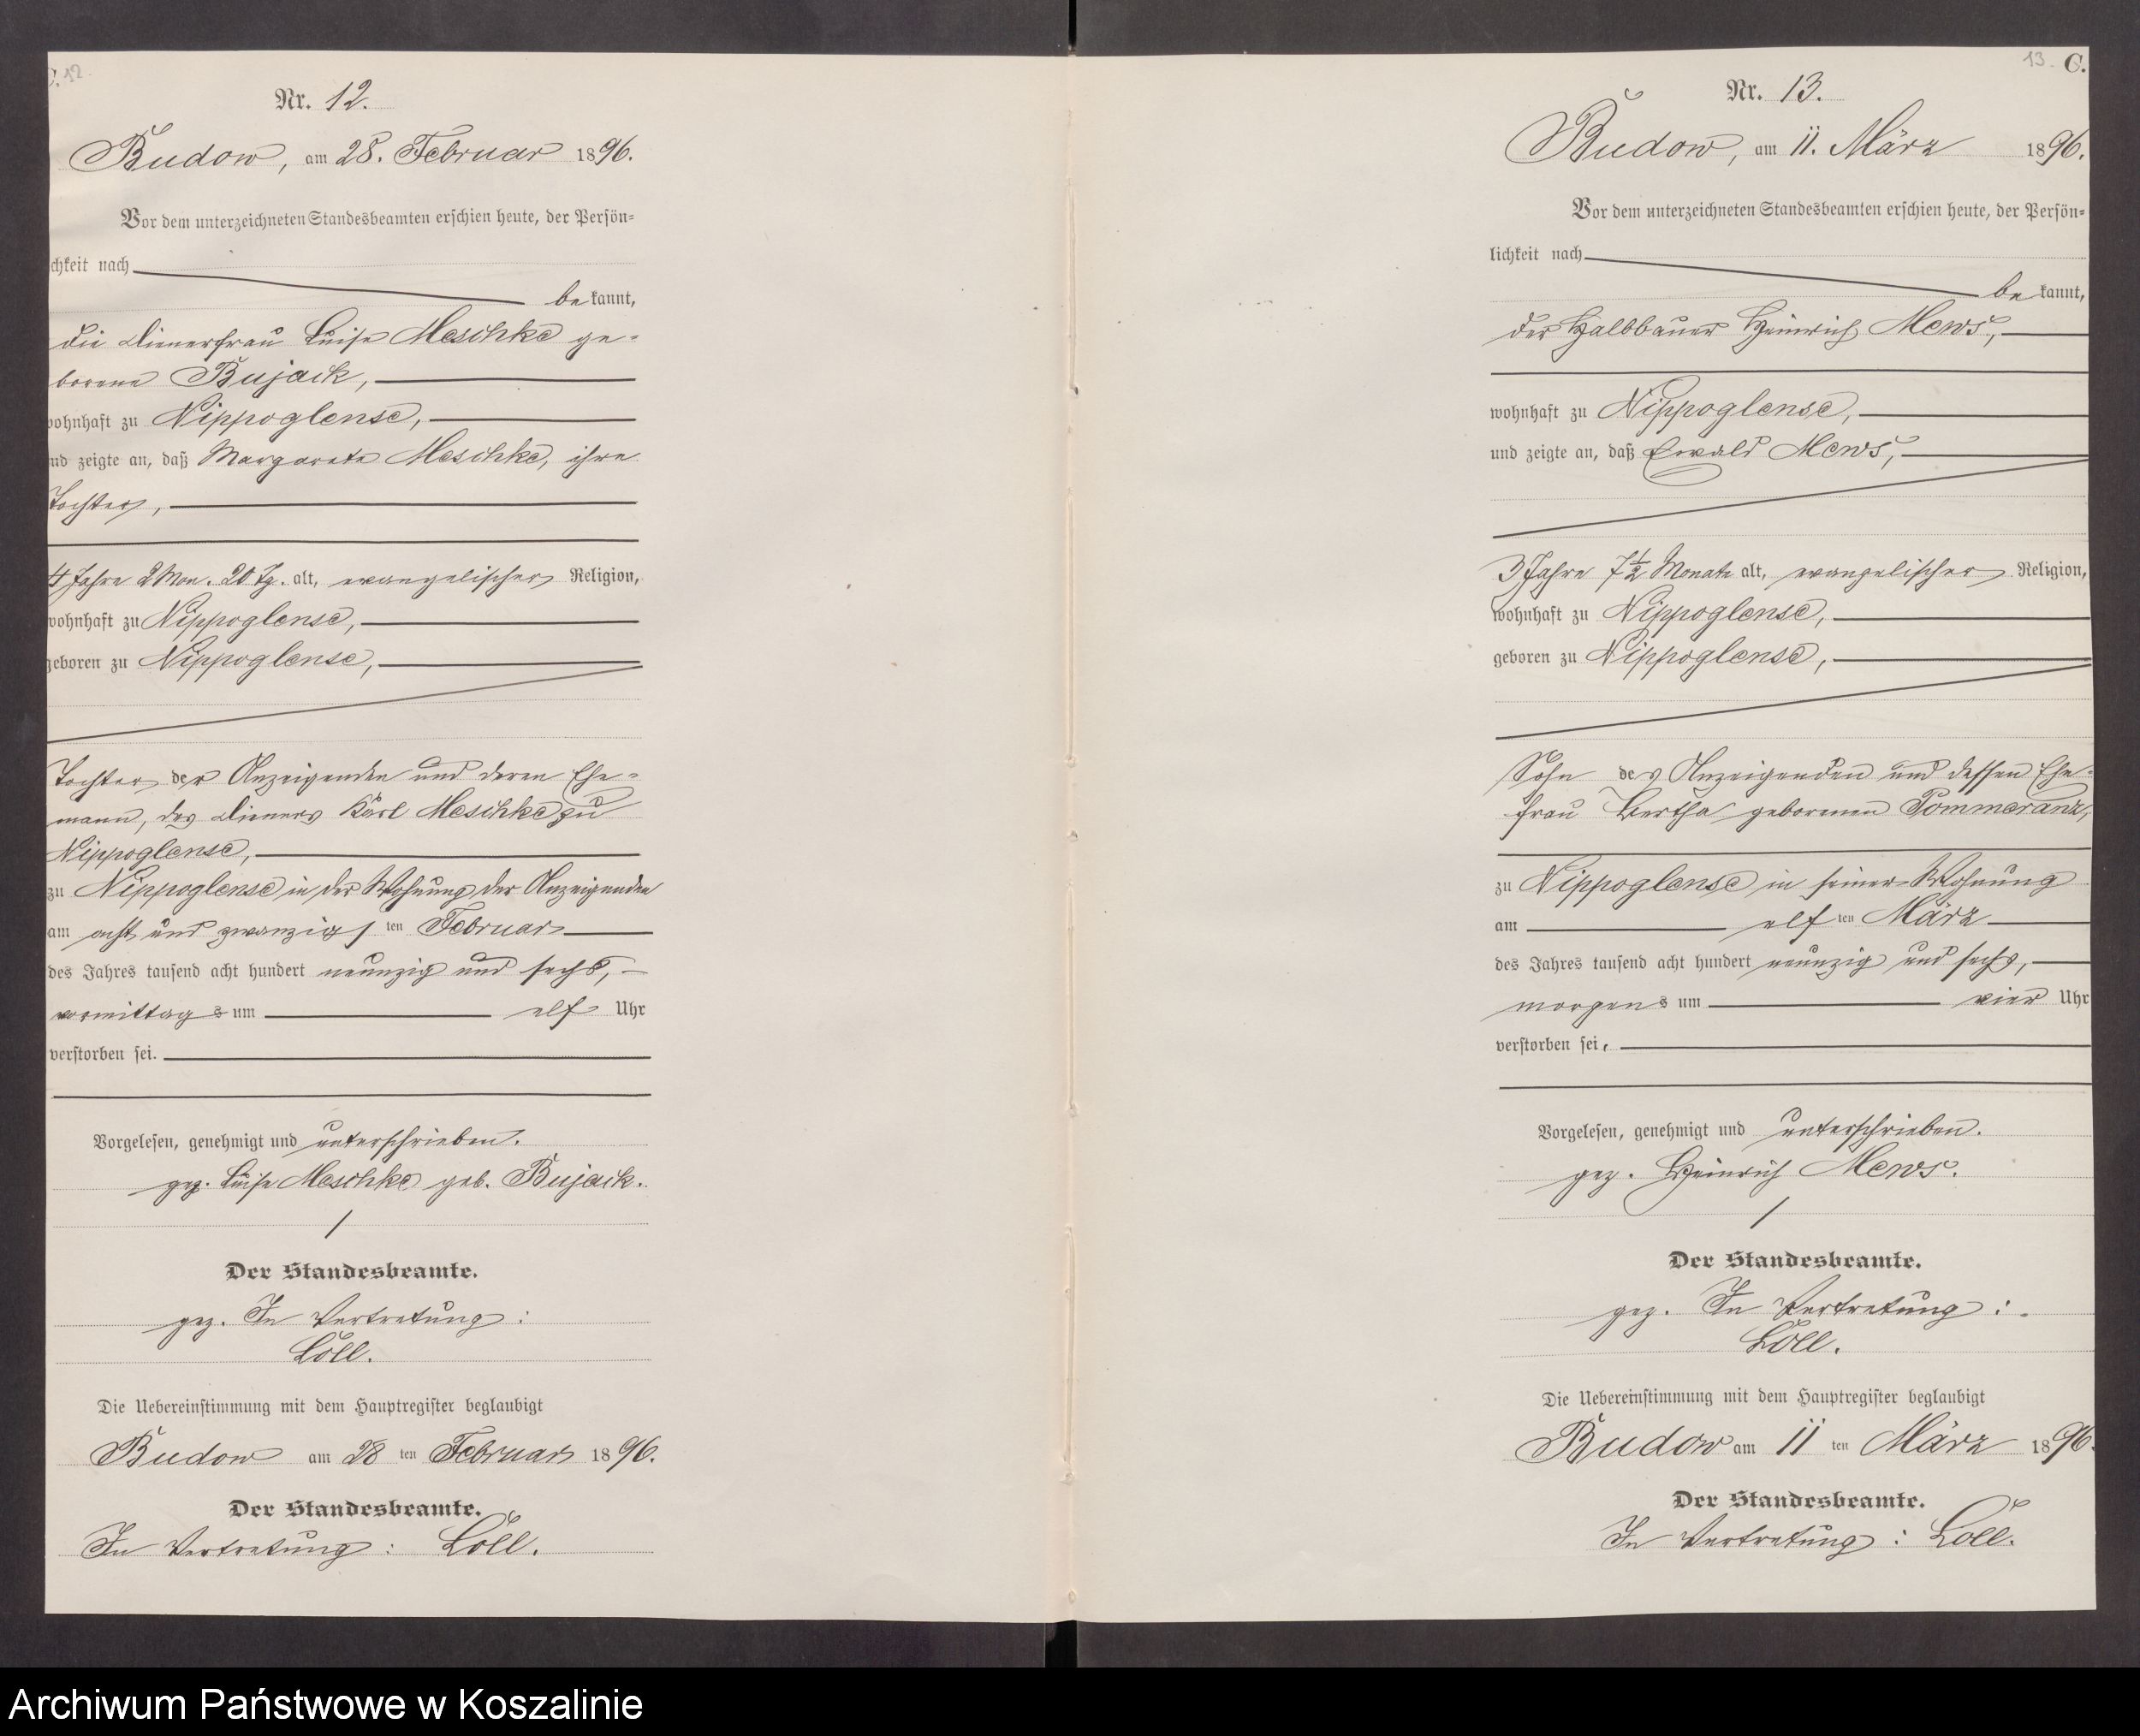 12.
Nr. 12.
Budow, am 28. Februar 1896.
Vor dem unterzeichneten Standesbeamten erschien heute, der Persön-
chkeit nach
be kannt,
die Dienerfrau Luise Meschke ge-
borene Bujack,
wohnhaft zu Nippoglense,
nd zeigte an, daß Margarete Meschke, ihre
Tochter,
4 Jahre 2 Mon. 20 Tg. alt, evangelischer Religion,
wohnhaft zu Nippoglense,
geboren zu Nippoglense,
Tochter der Anzeigenden und deren Ehe-
mann, des Dieners Karl Meschke zu
Nippoglense,
zu Nippoglense in der Wohnung der Anzeigenden
am acht und zwanzigsten Februar
des Jahres tausend acht hundert neunzig und sechs,
vormittags um elf Uhr
verstorben sei.
Vorgelesen, genehmigt und unterschrieben.
gez. Luise Meschke geb. Bujack.
Der Standesbeamte.
gez. In Vertretung:
Löll.
Die Uebereinstimmung mit dem Hauptregister beglaubigt
Budow am 28 ten Februar 1896.
Der Standesbeamte.
In Vertretung: Löll.
13. C.
Nr. 13.
Budow, am 11. März 1896.
Vor dem unterzeichneten Standesbeamten erschien heute, der Persön-
lichkeit nach
be kannt,
der Halbbauer Heinrich Mews,
wohnhaft zu Nippoglense,
und zeigte an, daß Ewald Mews,
3 Jahre 7½ Monate alt, evangelischer Religion,
wohnhaft zu Nippoglense,
geboren zu Nippoglense,
Sohn des Anzeigenden und dessen Ehe-
frau Bertha geborenen Pommeranz,
zu Nippoglense in seiner Wohnung
am elf ten März
des Jahres tausend acht hundert neunzig und sechs,
morgens um vier Uhr
verstorben sei.
Vorgelesen, genehmigt und unterschrieben.
gez. Heinrich Mews.
Der Standesbeamte.
gez. In Vertretung:
Löll.
Die Uebereinstimmung mit dem Hauptregister beglaubigt
Budow am 11 ten März 1896.
Der Standesbeamte.
In Vertretung: Löll.
Archiwum Państwowe w Koszalinie